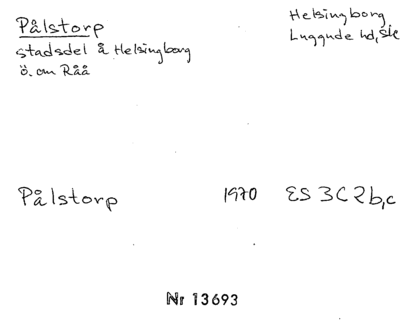 Pålstorp
stadsdel å Helsingborg
ö. om Råå
Helsingborg
Luggude hd, Sk
Pålstorp 1970 ES 3C2b,c
Nr 13693